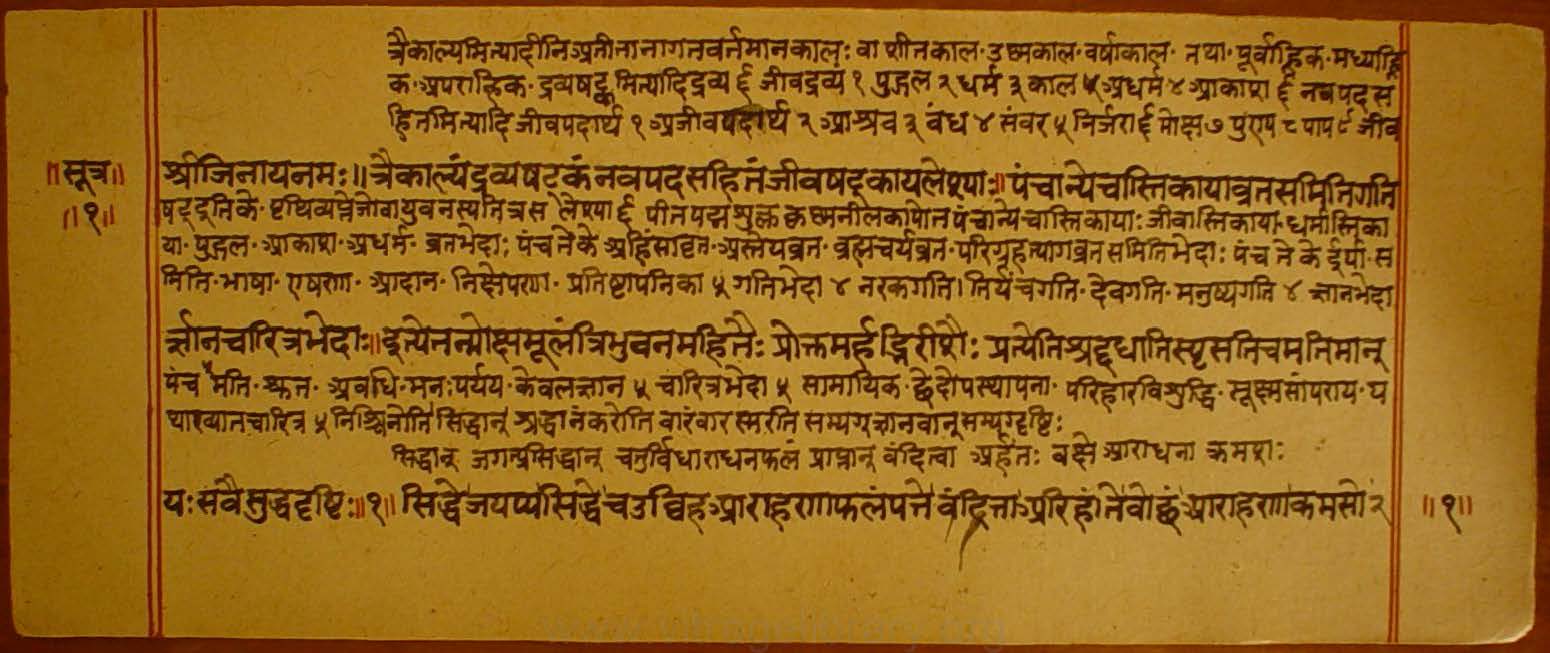 त्रैकाल्यमित्यादीनिअतीतानागतवर्तमानकालः वा शीतकाल॰उष्मकाल॰वर्षाकाल॰ तथा॰ पूर्वाह्निक॰मध्याह्नि
क॰अपराह्निक॰ द्रव्यषट्कमित्यादिद्रव्य ६ जीवद्रव्य १ पुद्गल २ धर्म ३ काल ५ अधर्म ४ आकाश ६ नवपदस
हितमित्यादि जीवपदार्थ १ अजीवपदार्थ २ आश्रव ३ बंध ४ संवर ५ निर्जरा ६ मोक्ष ७ पुंण्य ८ पाप ९ जीव
॥सूत्र॥ श्रीजिनायनमः॥ त्रैकाल्यंद्रव्यषट्कंनवपदसहितंजीवषट्कायलेश्याः॥पंचान्येचास्तिकायाव्रतसमितिगति
॥१॥ षट्दूतिके॰ पृथिव्यप्तेजोवायुवनस्पतित्रस लेश्या ६ पीतपद्मशुक्लकृष्मनीलकापोत पंचान्येचास्तिकायाः जीवास्तिकाया॰धर्मास्तिका
या॰पुद्गल॰आकाश॰अधर्म॰ व्रतभेदाः पंच तेके अहिंसाव्रत॰अस्तेयव्रत॰ ब्रह्मचर्यव्रत॰परिग्रहत्यागव्रतसमितिभेदाः पंच तेके ईर्या॰स
मिति॰भाषा॰ एषण॰ आदान॰ निक्षेपण॰ प्रतिष्टापनिका ५ गतिभेदा ४ नरकगति।तिर्यंचगति॰देवगति॰मनुष्यगति ४ ज्ञानभेदा
र्ज्ञानचारित्रभेदाः॥इत्येतन्मोक्षमूलंत्रिभुवनमहितैः प्रोक्तमर्हद्भिरीशैः प्रत्येतिश्रद्दधातिस्पृसतिचमतिमान्
पंच मति॰श्रुत॰ अवधि॰मनःपर्यय॰केवलज्ञान ५ चारित्रभेदा ५ सामायिक॰छेदोपस्थापना॰ परिहारविशुद्धि॰ सूक्ष्मसांपराय॰य
थाख्यातचारित्र ५ निश्चिनोति सिद्धान् श्रद्धानंकरोति वारंवार स्मरति सम्यग्ज्ञानवान्सम्यग्दृष्टिः
सिद्धान् जगत्प्रसिद्धान् चतुर्विधाराधनफलं प्राप्तान् वंदित्वा अर्हतः वक्ष्ये आराधना क्रमशः
यः सवैसुद्धदृष्टिः॥१॥ सिद्धेजयप्पसिद्धेचउव्विहआराहणाफलंपत्ते वंदित्ताअरिहंतेवोछंआराहणाकमसो २ ॥१॥